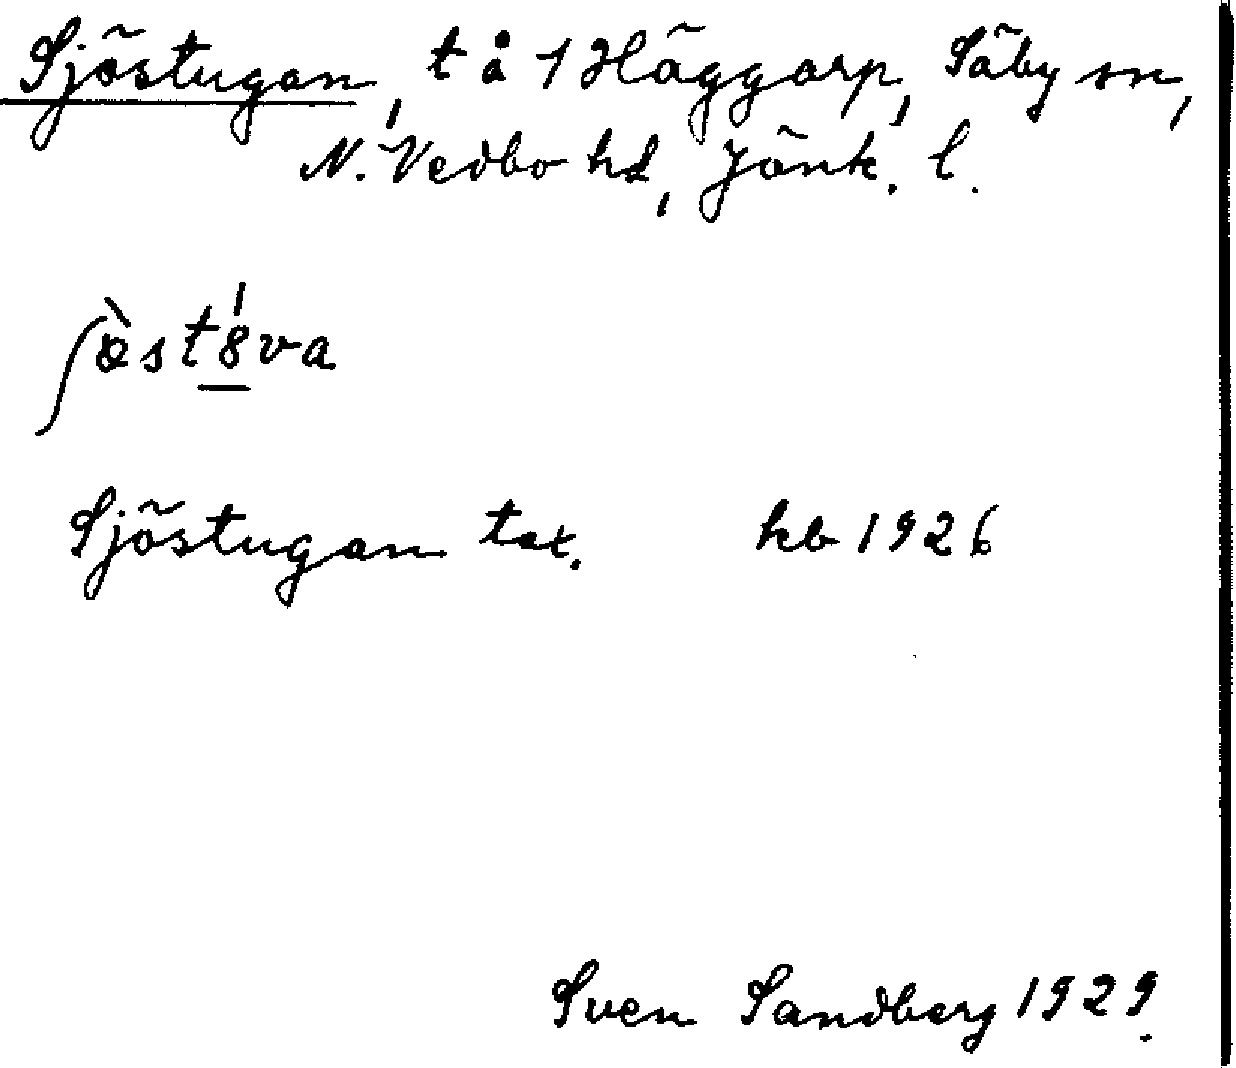 Sjöstugan, t å 1 Häggarp, Säby sn,
N. Vedbo hd, Jönk. l.
Sjöstugan tax. hb 1926
Sven Sandberg 1929.